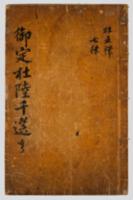 御定杜陸千選 亨
杜五律
七律